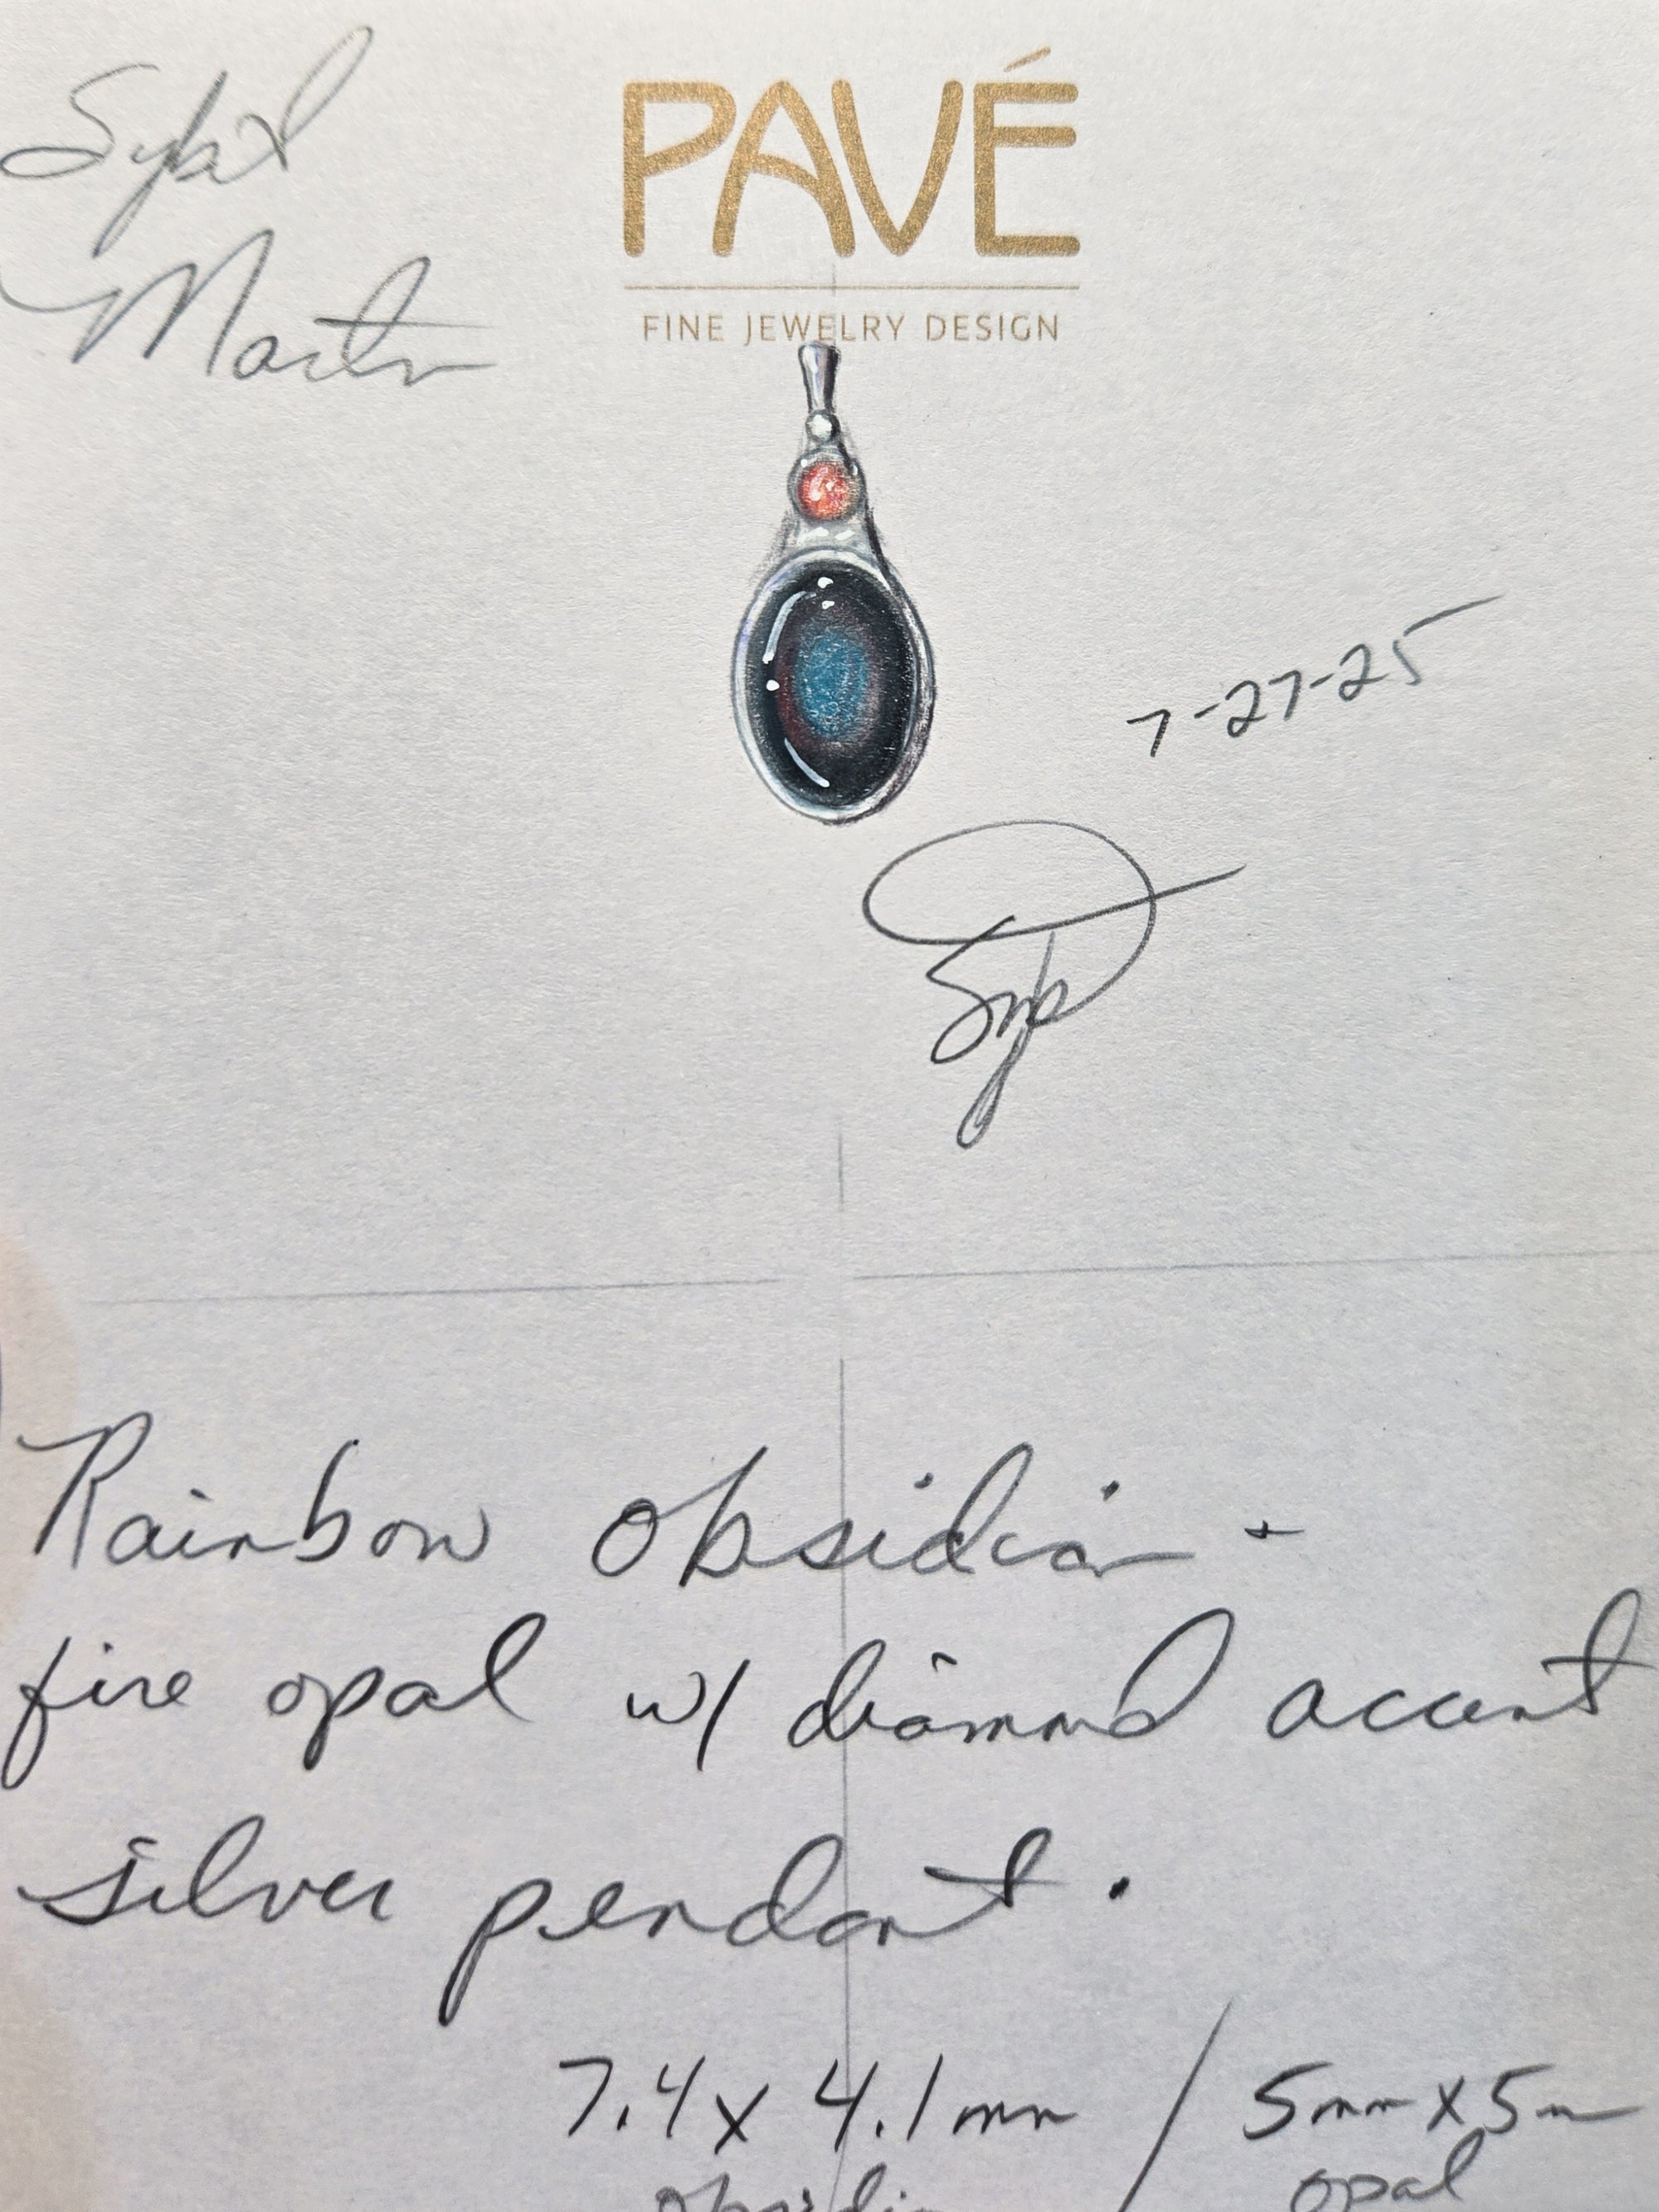 Sybil
Martin
PAVÉ
FINE JEWELRY DESIGN
7-27-25
Syb
Rainbow Obsidian +
fire opal w/ diamond accent
silver pendant.
7.4 x 4.1mm / 5mm x 5m
obsidian opal